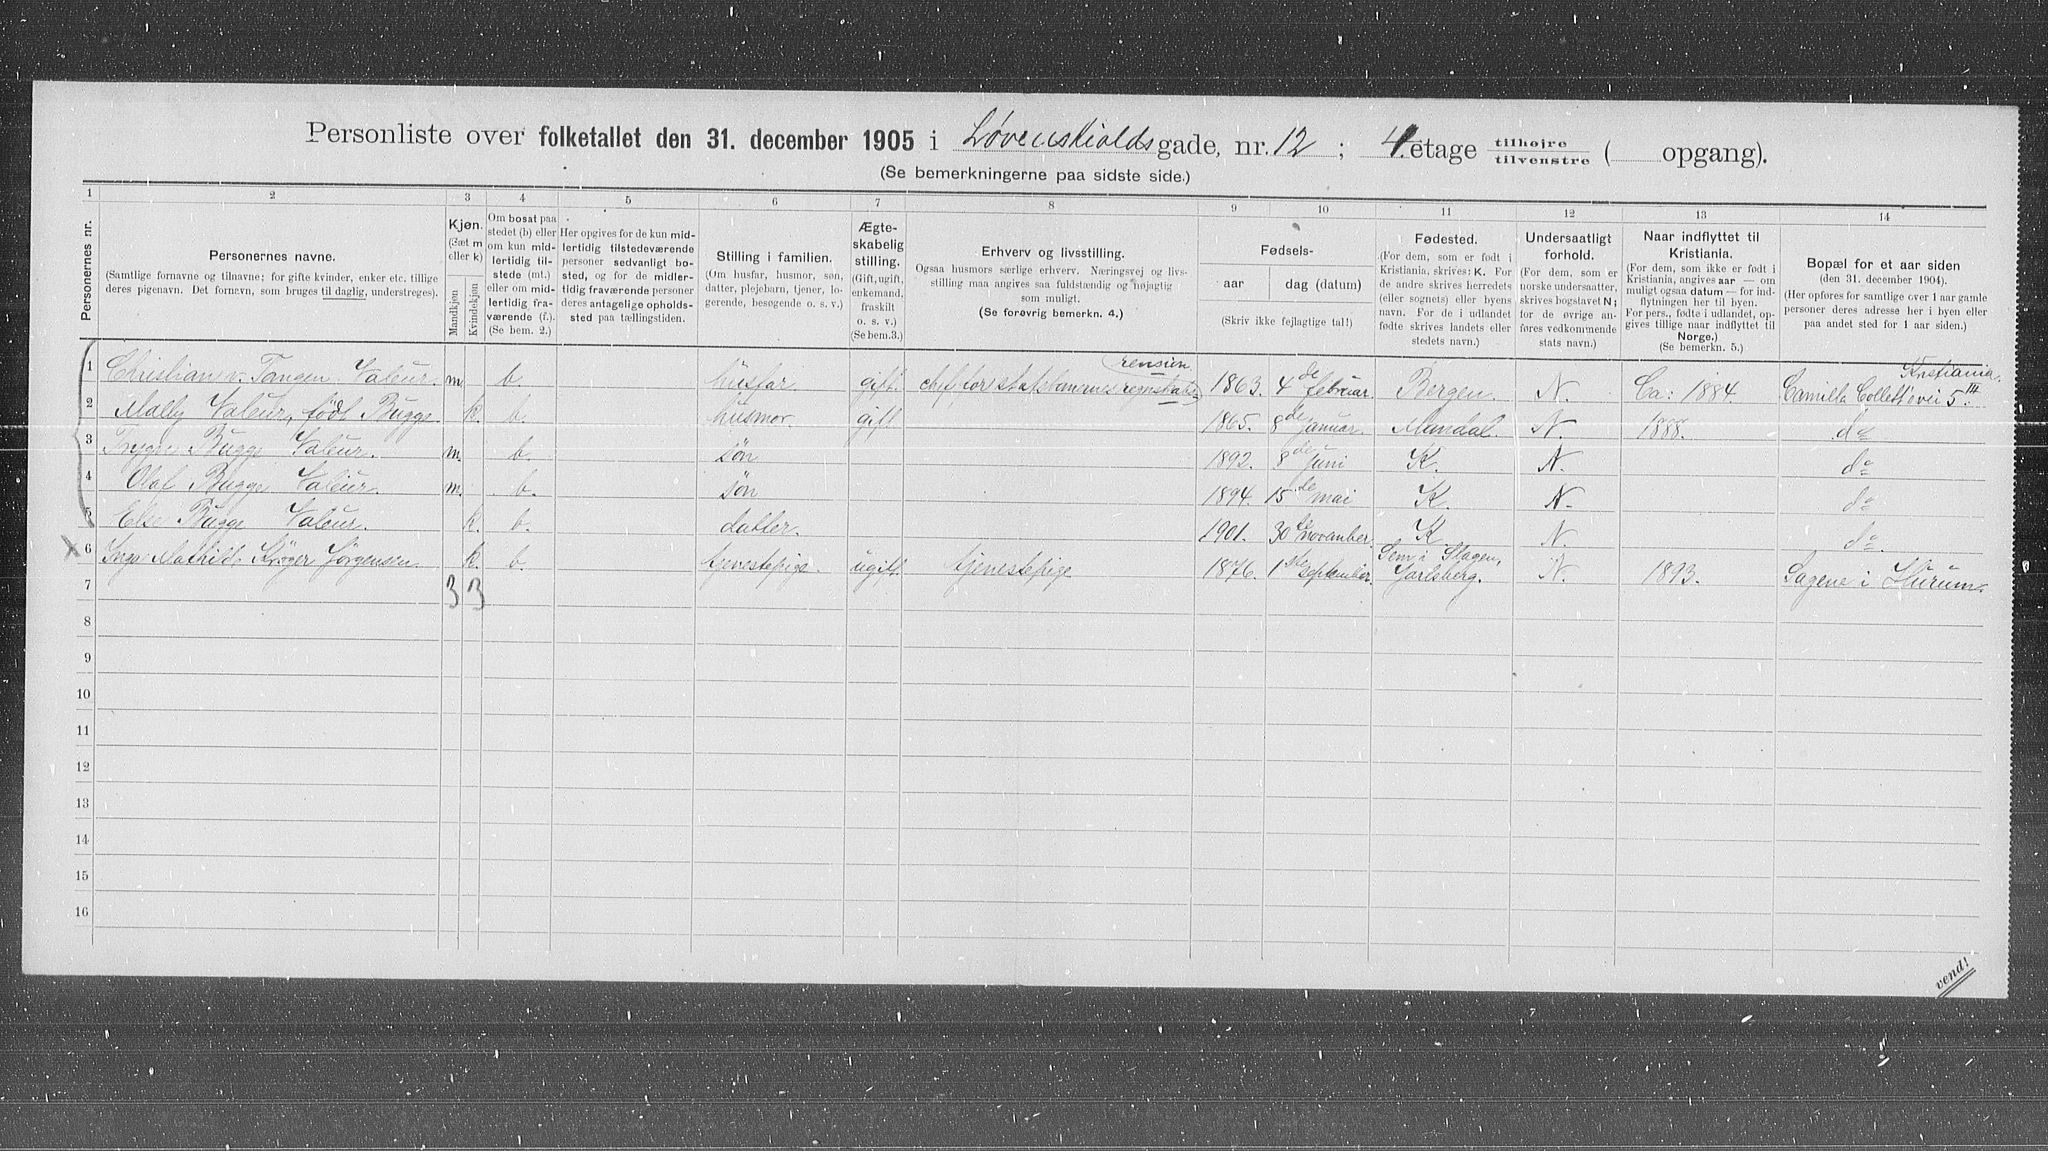 Personliste over folketallet den 31. december 1905 i Løvenskioldsgade, nr. 12 ; 4. etage tilhøjre tilvenstre ( opgang).
(Se bemerkningerne paa sidste side.)
1 2 3 4 5 6 7 8 9 10 11 12 13 14
Personernes nr.
Personernes navne.
(Samtlige fornavne og tilnavne; for gifte kvinder, enker etc. tillige deres pigenavn. Det fornavn, som bruges til daglig, understreges).
Kjøn. (Sæt m eller k) Mandkjøn Kvindekjøn
Om bosat paa stedet (b) eller om kun midlertidig tilstede (mt.) eller om midlertidig fraværende (f.). (Se bem. 2.)
Her opgives for de kun midlertidig tilstedeværende personer sedvanligt bosted, og for de midlertidig fraværende personer deres antagelige opholdssted paa tællingstiden.
Stilling i familien. (Om husfar, husmor, søn, datter, plejebarn, tjener, logerende, besøgende o. s. v.)
Ægteskabelig stilling. (Gift, ugift, enkemand, fraskilt o. s. v.) (Se bem. 3.)
Erhverv og livsstilling. Ogsaa husmors særlige erhverv. Næringsvej og livsstilling maa angives saa fuldstændig og nøjagtig som muligt. (Se forøvrig bemerkn. 4.)
Fødsels- aar dag (datum) (Skriv ikke fejlagtige tal!)
Fødested. (For dem, som er født i Kristiania, skrives: K. For de andre skrives herredets (eller sognets) eller byens navn. For de i udlandet fødte skrives landets eller stedets navn.)
Undersaatligt forhold. (For dem, som er norske undersaatter, skrives bogstavet N; for de øvrige anføres vedkommende stats navn.)
Naar indflyttet til Kristiania. (For dem, som ikke er født i Kristiania, angives aar — om muligt ogsaa datum — for indflytningen her til byen. For pers., fødte i udlandet, opgives tillige naar indflyttet til Norge.) (Se bemerkn. 5.)
Bopæl for et aar siden (den 31. december 1904). (Her opføres for samtlige over 1 aar gamle personer deres adresse her i byen eller paa andet sted for 1 aar siden.)
1 Christian v. Tangen Valeur. m. b. husfar gift. chef for statsbanernes regnskabs rension 1863. 4de februar. Bergen. N. Ca: 1884 Camilla Collettsvei 5III Kristiania.
2 Mally Valeur, født Bugge k. b. husmor. gift 1865. 8de januar. Mandal. N. 1888. do
3 Trygve Bugge Valeur. m. b. søn 1892. 8de juni K. N. do
4 Olaf Bugge Valeur. m. b. søn 1894. 15de mai K. N. do
5 Else Bugge Valeur. k. b. datter. 1901. 30te november. K. N do.
6 Inga Mathilde Krøger Jørgensen k. b. tjenestepige. ugift. tjenestepige 1876. 1ste september. Sem i Slagen, Jarlsberg. N. 1893. Sagene i Hurum.
7 3 3
8
9
10
11
12
13
14
15
16
vend!